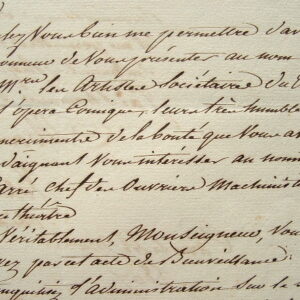 Vous bien me permettre d'av
honneur de vous présenter au nom
MMrs les Artistes Sociétaires du
l'opera Comique, leurs très humble
remercimens de la bonté que vous av
daignant vous intéresser au nom
Carré chef des ouvriers Machinist
théâtre
Véritablement, Monseigneur, Vou
ez par cet acte de Bienveillance
d'administration sur le